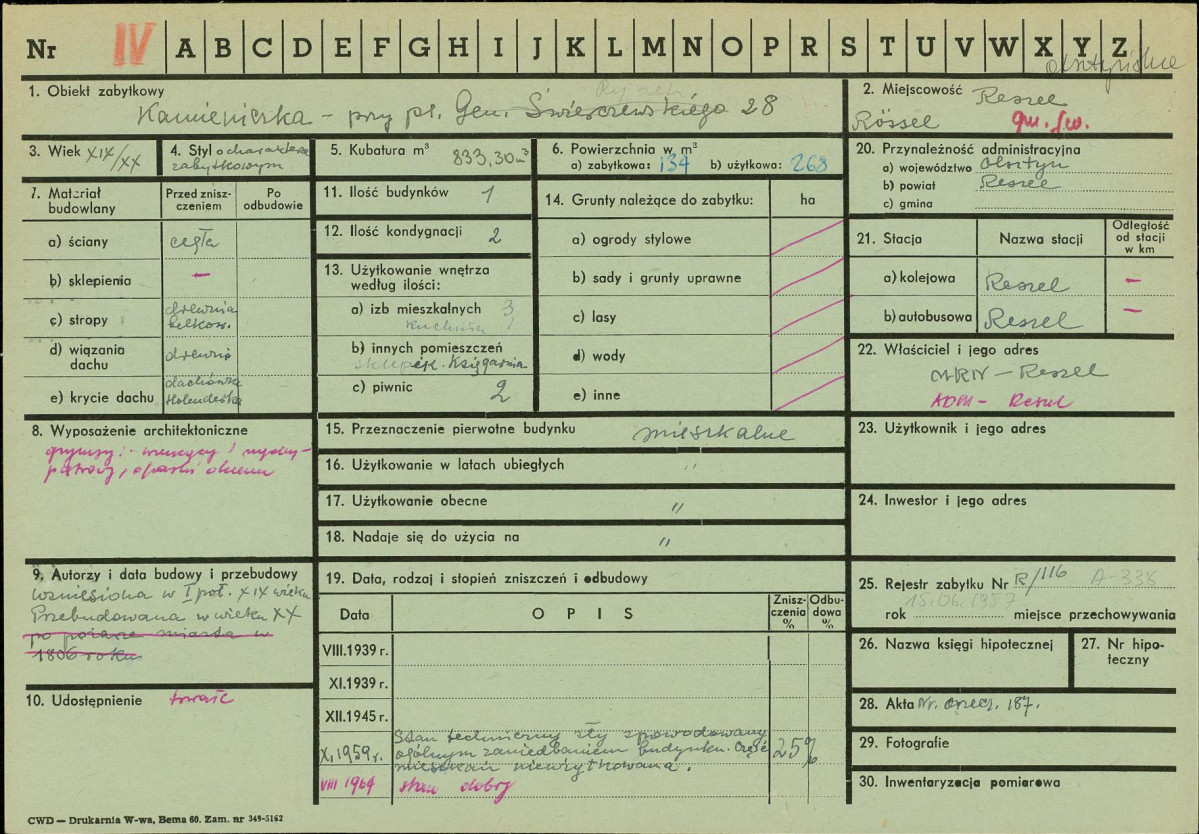 Nr IV A B C D E F G H I J K L M N O P R S T U V W X Y Z
olsztyńskie
1. Obiekt zabytkowy
Kamieniczka - przy pl. Gen. Świerczewskiego 28
2. Miejscowość Reszel
Rössel
3. Wiek XIX/XX
4. Styl o charakterze
zabytkowym
5. Kubatura m³ 833,30 m³
6. Powierzchnia w m²
a) zabytkowa: 134 b) użytkowa: 268
20. Przynależność administracyjna
a) województwo Olsztyn
b) powiat Reszel
c) gmina
7. Materiał budowlany
Przed zniszczeniem
Po odbudowie
a) ściany cegła
b) sklepienia —
c) stropy drewniane
belkow.
d) wiązania dachu drewno
e) krycie dachu dachówka
Holenderka
11. Ilość budynków 1
12. Ilość kondygnacji 2
13. Użytkowanie wnętrza
według ilości:
a) izb mieszkalnych 3
kuchnia 1
b) innych pomieszczeń
Księgarnia
c) piwnic 2
14. Grunty należące do zabytku: ha
a) ogrody stylowe
b) sady i grunty uprawne
c) lasy
d) wody
e) inne
21. Stacja Nazwa stacji Odległość od stacji w km
a) kolejowa Reszel —
b) autobusowa Reszel —
22. Właściciel i jego adres
MRN - Reszel
ADM - Reszel
8. Wyposażenie architektoniczne
gzymsy: wieńczący i między-
piętrowy, opaski okienne
15. Przeznaczenie pierwotne budynku mieszkalne
16. Użytkowanie w latach ubiegłych "
17. Użytkowanie obecne "
18. Nadaje się do użycia na "
23. Użytkownik i jego adres
24. Inwestor i jego adres
9. Autorzy i data budowy i przebudowy
Wzniesiona w I poł. XIX wieku
Przebudowana w wieku XX
po pożarze miasta w
1806 roku
10. Udostępnienie
19. Data, rodzaj i stopień zniszczeń i odbudowy
Data OPIS Zniszczenia % Odbudowa %
VIII.1939 r.
XI.1939 r.
XII.1945 r.
X.1959 r. Stan techniczny zły spowodowany
ogólnym zaniedbaniem budynku. Część
mieszkań nieużytkowana. 25%
VIII 1964 stan dobry
25. Rejestr zabytku Nr R/116 A-338
15.06.1957
rok miejsce przechowywania
26. Nazwa księgi hipotecznej
27. Nr hipoteczny
28. Akta Nr. 187.
29. Fotografie
30. Inwentaryzacja pomiarowa
CWD — Drukarnia W-wa, Bema 60. Zam. nr 349-5162